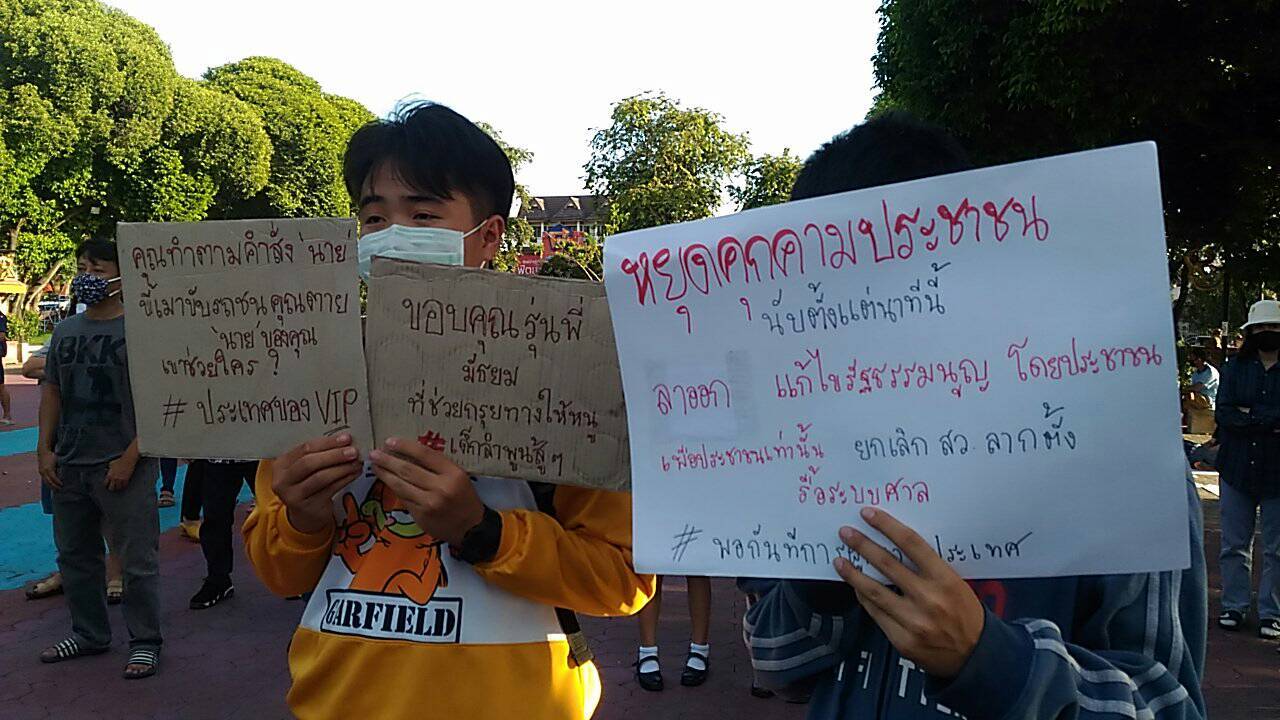 คุณทำตามคำสั่ง 'นาย'
ขี้เมาขับรถชน คุณตาย
'นาย' ของคุณ
เขาช่วยใคร ?
# ประเทศของ VIP
ขอบคุณ รุ่นพี่
มัธยม
ที่ช่วยกรุยทางให้หนู
#เด็กลำพูนสู้ๆ
หยุดคุกคามประชาชน
นับตั้งแต่นาทีนี้
ลาออก แก้ไขรัฐธรรมนูญ โดยประชาชน
เพื่อประชาชนเท่านั้น ยกเลิก สว. ลากตั้ง
รื้อระบบศาล
# พอกันที ประเทศ
BKK
GARFIELD